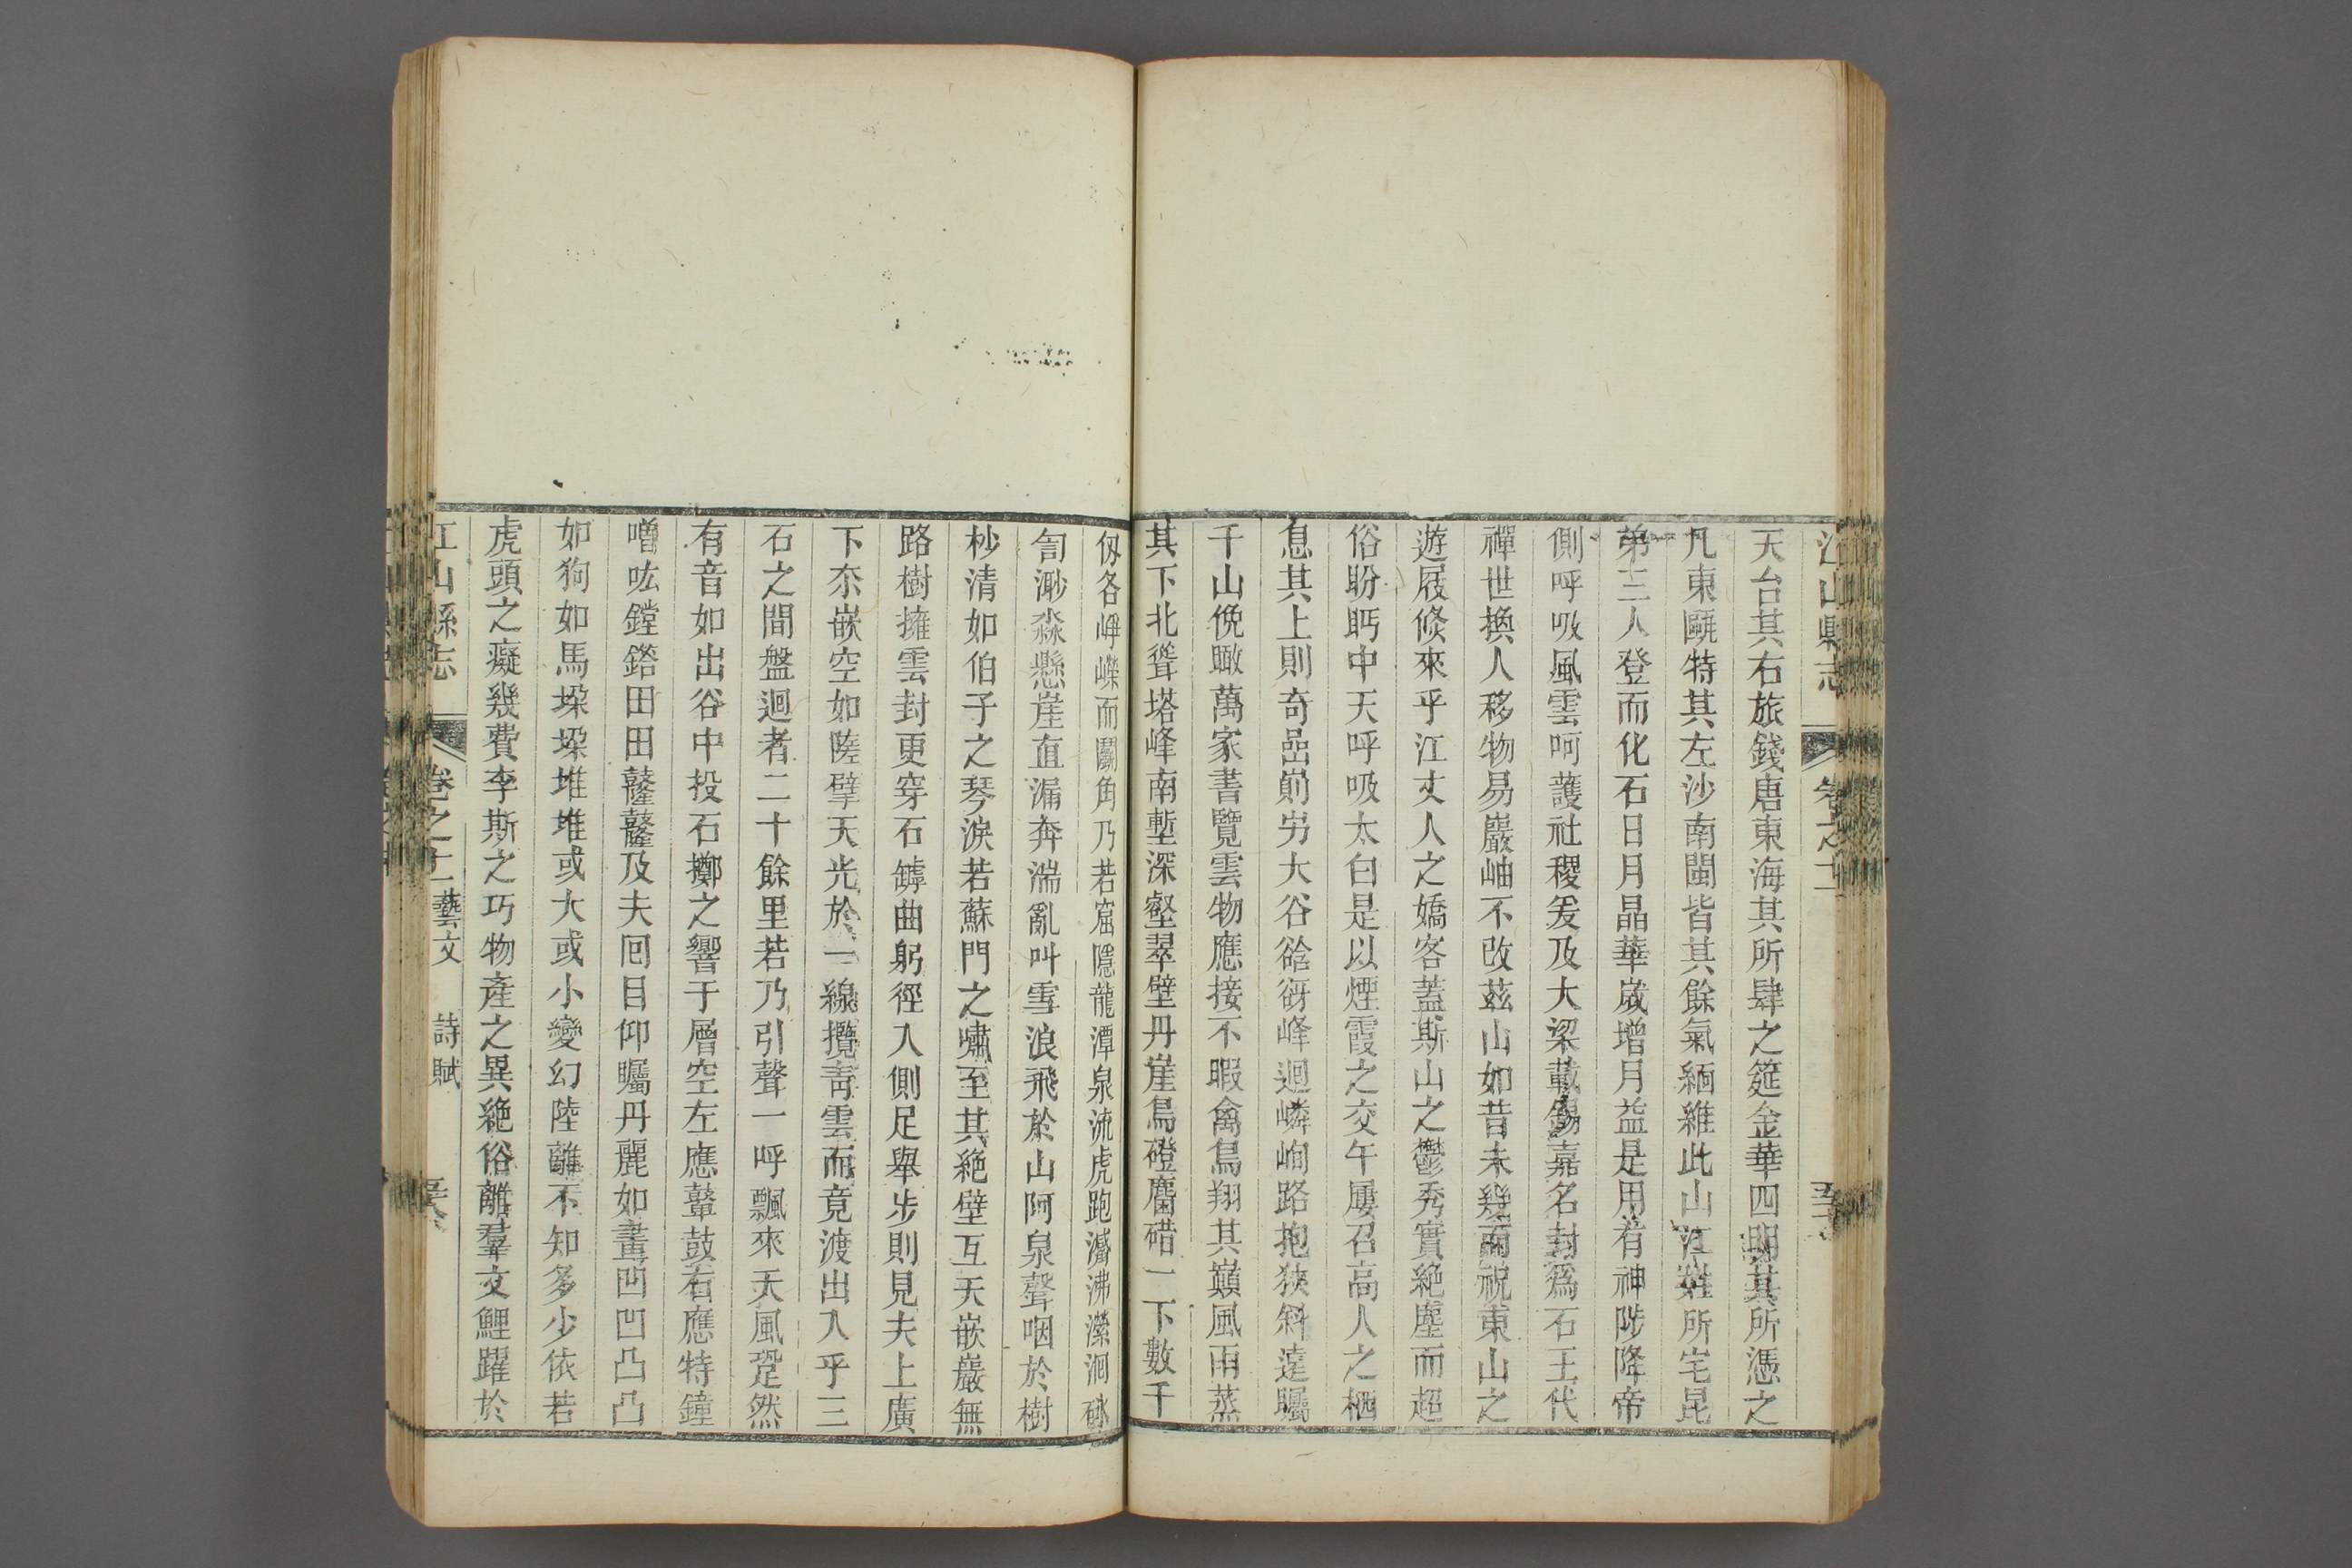 江山縣志 卷之十一
天台其右旅錢唐東海其所肆之筵金華四明其所憑之
凡東甌特其左沙南閩皆其餘氣緬維此山江姓所宅昆
弟三人登而化石日月晶華歲增月益是用有神陟降帝
側呼吸風雲呵護社稷爰及大梁載錫嘉名封爲石王代
禪世換人移物易巖岫不改茲山如昔未幾而祝東山之
遊屐倏來乎江丈人之嬌客蓋斯山之鬱秀實絶塵而超
俗盼眄中天呼吸太白是以煙霞之交午屢召高人之栖
息其上則奇嵒崱屴大谷谽谺峰迴嶙峋路抱狹斜遠矚
千山俛瞰萬家書覽雲物應接不暇禽鳥翔其巔風雨蒸
其下北聳塔峰南塹深壑翠壁丹崖鳥磴麕碏一下數千
仭各崢嶸而鬭角乃若窟隱龍潭泉流虎跑灊沸瀠洄砯
訇渺淼懸崖直漏奔湍亂叫雪浪飛於山阿泉聲咽於樹
杪清如伯子之琴淚若蘇門之嘯至其絶壁亙天嵌巖無
路樹擁雲封更穿石罅曲躬徑入側足舉步則見夫上廣
下夵嵌空如陸擘天光於一線攬靑雲而竟渡出入乎三
石之間盤迴者二十餘里若乃引聲一呼飄來天風跫然
有音如出谷中投石擲之響于層空左應鼙鼓右應特鐘
噌吰鏜鎝田田鼞鼞及夫囘目仰矚丹麗如畫凹凹凸凸
如狗如馬垜垜堆堆或大或小變幻陸離不知多少依若
虎頭之癡幾費李斯之巧物產之異絶俗離羣文鯉躍於
江山縣志 卷之十一藝文 詩賦